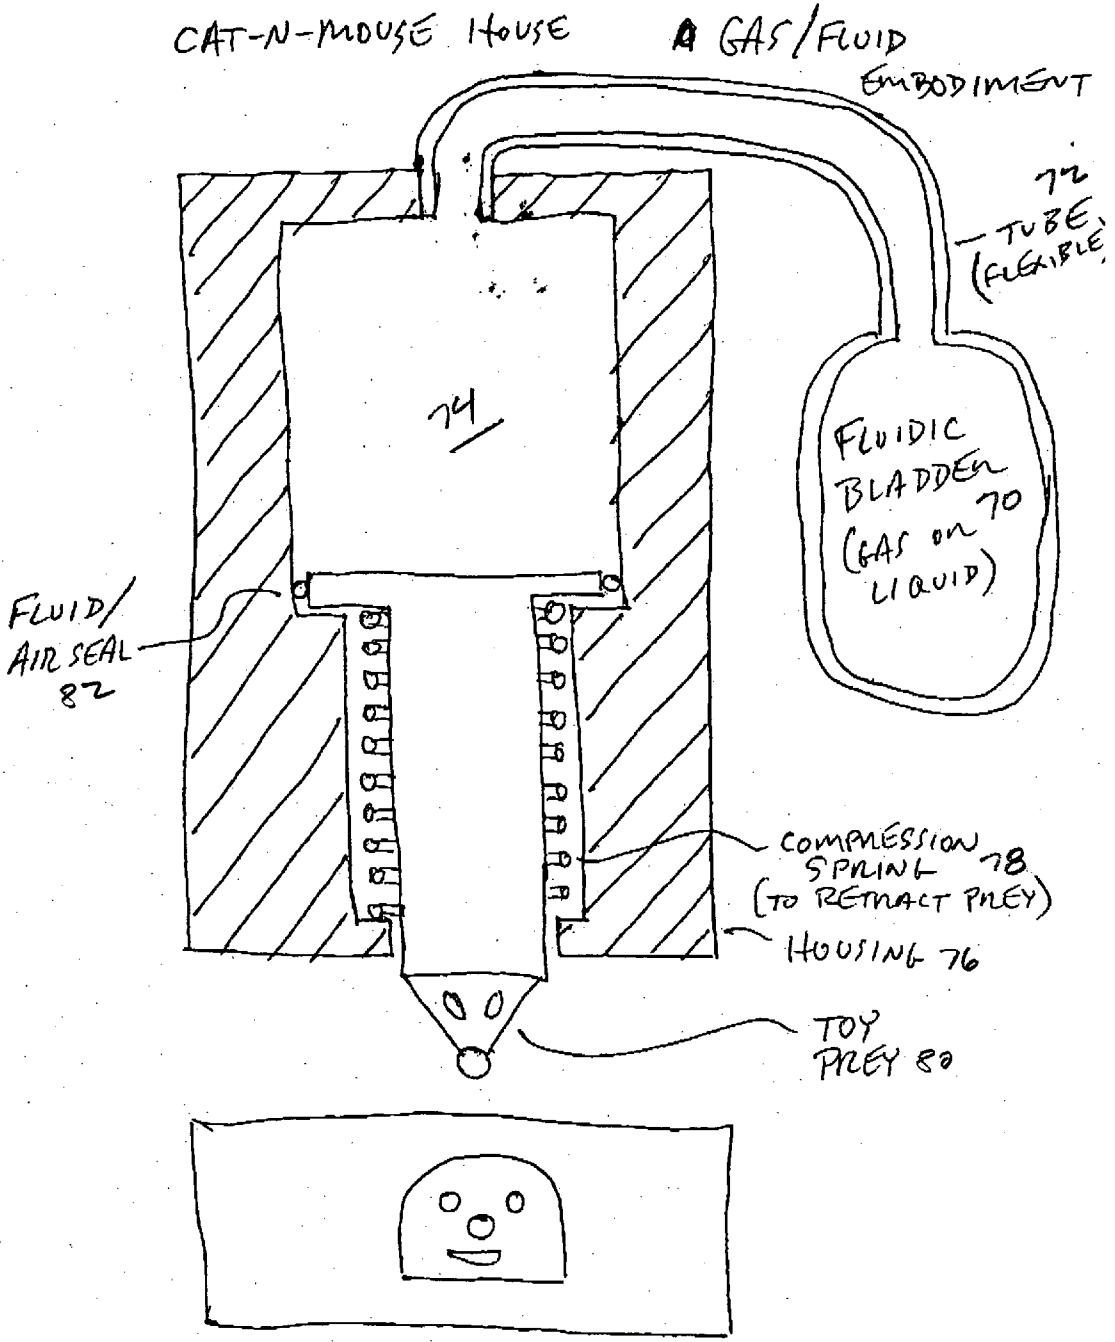 CAT-N-MOUSE HOUSE
A GAS/FLUID
EMBODIMENT
72
TUBE
(FLEXIBLE)
74
FLUIDIC
BLADDER
70
(GAS OR
LIQUID)
FLUID/
AIR SEAL
82
COMPRESSION
SPRING 78
(TO RETRACT PREY)
HOUSING 76
TOY
PREY 80